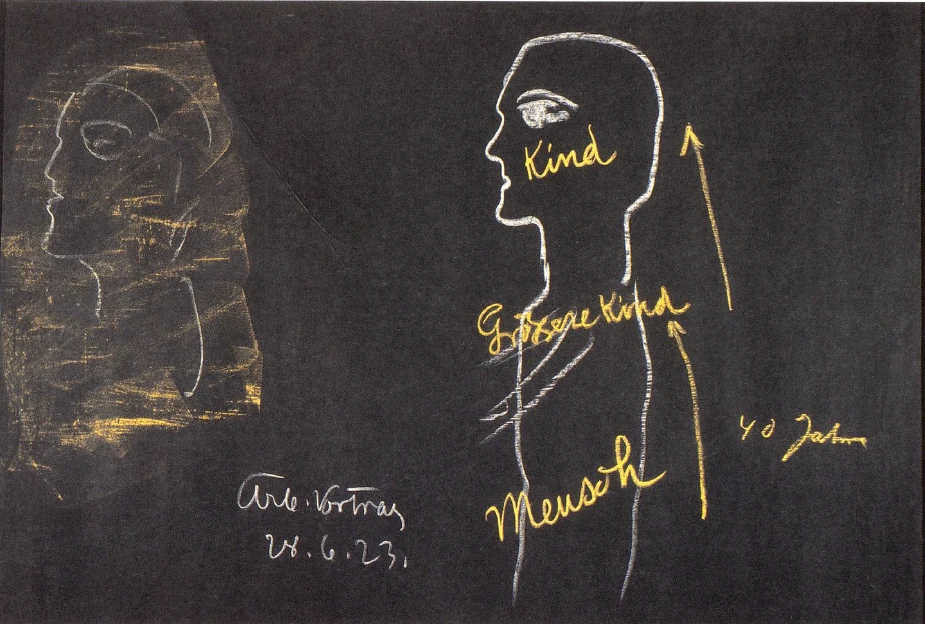 Kind
Grözere Kind
Mensch
40 Jahre
Arb. Vortrag
28.6.23.